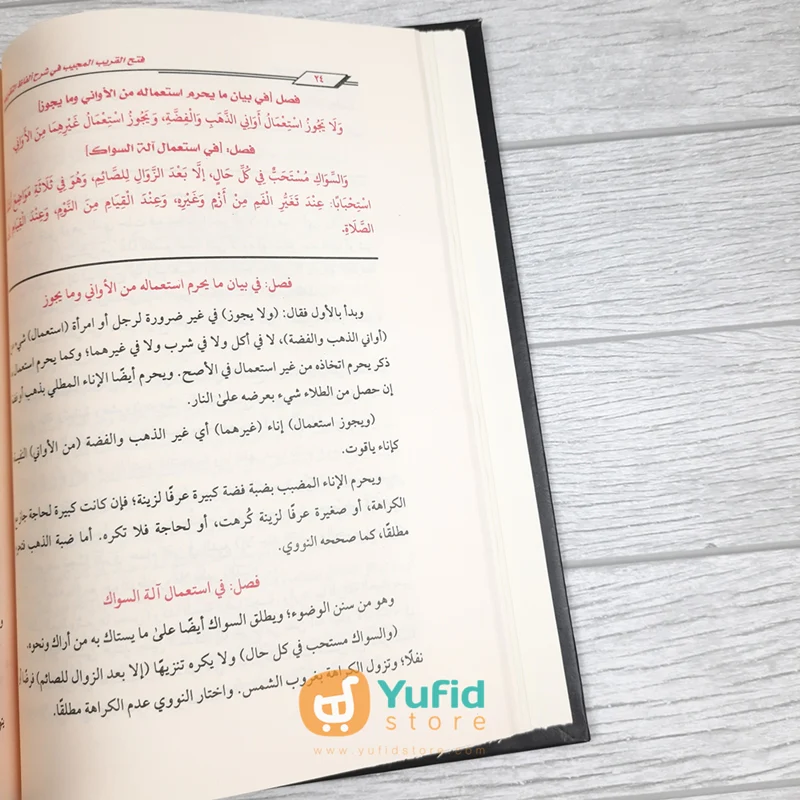 ٢٤
فتح القريب المجيب في شرح ألفاظ
فصل [في بيان ما يحرم استعماله من الأواني وما يجوز]
وَلَا يَجُوزُ اسْتِعْمَالُ أَوَانِي الذَّهَبِ وَالْفِضَّةِ، وَيَجُوزُ اسْتِعْمَالُ غَيْرِهِمَا مِنَ الْأَوَانِي
فصل: [في استعمال آلة السواك]
وَالسِّوَاكِ مُسْتَحَبٌّ فِي كُلِّ حَالٍ، إلَّا بَعْدَ الزَّوَالِ لِلصَّائِمِ، وَهُوَ فِي ثَلَاثَةِ مَوَاضِعَ
اسْتِحْبَابًا: عِنْدَ تَغَيُّرِ الْفَمِ مِنْ أَزْمٍ وَغَيْرِهِ، وَعِنْدَ الْقِيَامِ مِنَ النَّوْمِ، وَعِنْدَ الْقِيَامِ
الصَّلَاةِ.
فصل: في بيان ما يحرم استعماله من الأواني وما يجوز
وبدأ بالأول فقال: (ولا يجوز) في غير ضرورة لرجل أو امرأة (استعمال)
(أواني الذهب والفضة)، لا في أكل ولا في شرب ولا في غيرهما؛ وكما يحرم استعمال
ذكر يحرم اتخاذه من غير استعمال في الأصح. ويحرم أيضًا الإناء المطلي بذهب أو
إن حصل من الطلاء شيء بعرضه علىٰ النار.
(ويجوز استعمال) إناء (غيرهما) أي غير الذهب والفضة (من الأواني)
كإناء ياقوت.
ويحرم الإناء المضبب بضبة فضة كبيرة عرفًا لزينة؛ فإن كانت كبيرة لحاجة
الكراهة، أو صغيرة عرفًا لزينة كُرهت، أو لحاجة فلا تكره. أما ضبة الذهب
مطلقًا، كما صححه النووي.
فصل: في استعمال آلة السواك
وهو من سنن الوضوء؛ ويطلق السواك أيضًا علىٰ ما يستاك به من أراك ونحوه.
(والسواك مستحب في كل حال) ولا يكره تنزيهًا (إلا بعد الزوال للصائم)
نفلًا؛ وتزول الكراهة بغروب الشمس. واختار النووي عدم الكراهة مطلقًا.
Yufid
store
www.yufidstore.com